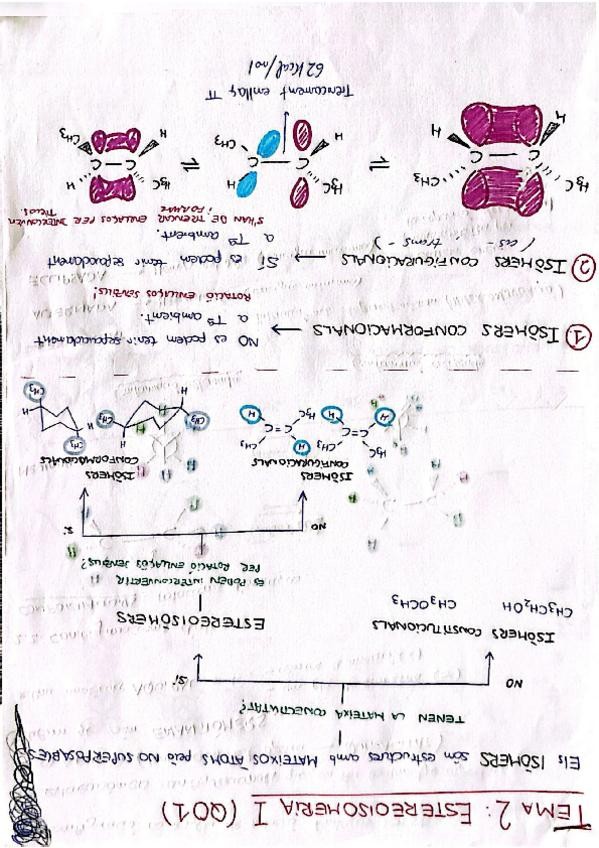 TEMA 2: ESTEREOISOMERIA I (QO1)
Els ISÒMERS són estructures amb MATEIXOS ÀTOMS però NO SUPERPOSABLES
TENEN LA MATEIXA CONECTIVITAT?
NO
SÍ
ISÒMERS CONSTITUCIONALS
CH3CH2OH CH3OCH3
ESTEREOISÒMERS
ES PODEN INTERCONVERTIR
PER ROTACIÓ ENLLAÇOS SENZILLS?
NO
SÍ
ISÒMERS
CONFIGURACIONALS
H3C H C=C H CH3
H H3C C=C CH3 H
ISÒMERS
CONFORMACIONALS
CH3 H H CH3
CH3 H H CH3
① ISÒMERS CONFORMACIONALS → NO es poden tenir separadament
a Tª ambient.
ROTACIÓ ENLLAÇOS SENZILLS!
② ISÒMERS CONFIGURACIONALS → SÍ es poden tenir separadament
(cis-, trans-)
a Tª ambient.
S'HAN DE TRENCAR I FORMAR ENLLAÇOS PER INTERCONVERTIR-LOS.
H3C H C - C CH3 H
H3C H C - C H CH3
H3C H C - C H CH3
Trencament enllaç π
62 Kcal/mol